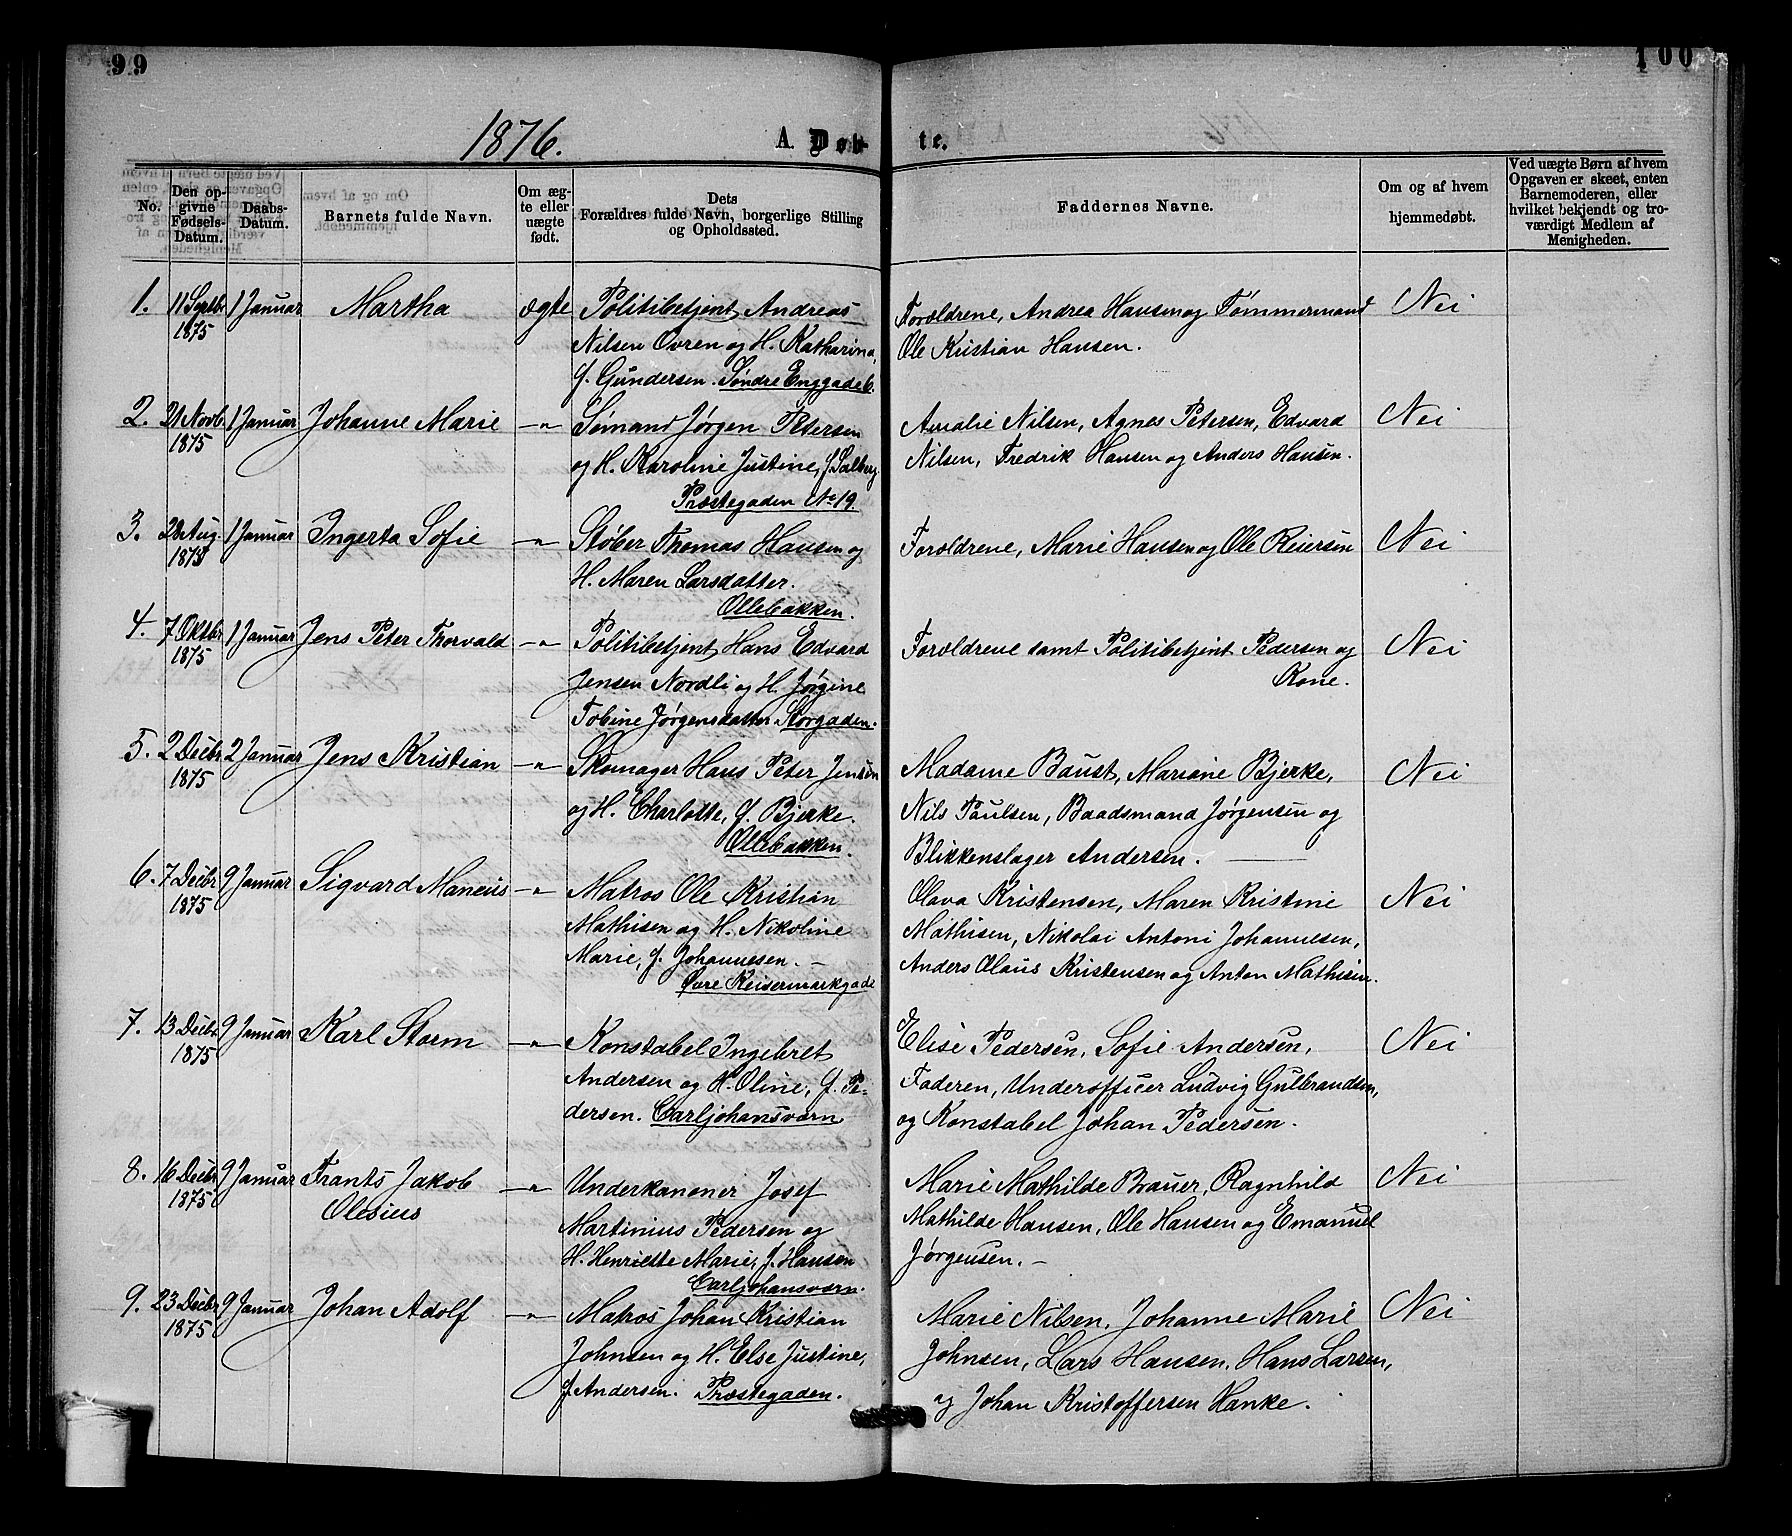 99
100
1876.
A. Døb-
te.
No.
Den op-
givne
Fødsels-
Datum.
Daabs-
Datum.
Barnets fulde Navn.
Om æg-
te eller
uægte
født.
Dets
Forældres fulde Navn, borgerlige Stilling
og Opholdssted.
Faddernes Navne.
Om og af hvem
hjemmedøbt.
Ved uægte Børn af hvem
Opgaven er skeet, enten
Barnemoderen, eller
hvilket bekjendt og tro-
værdigt Medlem af
Menigheden.
1. 11 Septbr 1 Januar Martha ægte Politibetjent Andreas
1875 Nilsen Ovren og H. Katharina,
f. Gundersen. Søndre Enggade 6.
Forældrene, Andrea Hansen og Tømmermand Nei
Ole Kristian Hansen.
2. 21 Novb. 1 Januar Johanne Marie -"- Sømand Jørgen Petersen
1875 og H. Karoline Justine, f. Solberg
Præstegaden No 19.
Amalie Nilsen, Agnes Petersen, Edvard Nei
Nilsen, Fredrik Hansen og Anders Hansen.
3. 28 Aug. 1 Januar Ingerta Sofie -"- Støber Thomas Hansen og
1875 H. Maren Larsdatter.
Ollebakken.
Forældrene, Marie Hansen og Ole Reiersen Nei
4. 7 Oktbr 1 Januar Jens Peter Thorvald -"- Politibetjent Hans Edvard
1875 Jensen Nordli og H. Jørgine
Tobine Jørgensdatter. Storgaden.
Forældrene samt Politibetjent Pedersen og Nei
Kone.
5. 2 Decbr 2 Januar Jens Kristian -"- Skomager Hans Peter Jensen
1875 og H. Charlotte, f. Bjerke.
Ollebakken.
Madame Baust, Mariane Bjerke, Nei
Nils Paulsen, Baadsmand Jørgensen og
Blikkenslager Andersen.
6. 7 Decbr 9 Januar Sigvard Mancius -"- Matros Ole Kristian
1875 Mathisen og H. Nikoline
Marie, f. Johannesen. -
Øvre Keisermarkgade
Olava Kristensen, Maren Kristine Nei
Mathisen, Nikolai Antoni Johannesen,
Anders Olaus Kristensen og Anton Mathisen.
7. 13 Decbr. 9 Januar Karl Storm -"- Konstabel Ingebret
1875 Andersen og H. Oline, f. Pe-
dersen. Carljohansværn
Elise Pedersen, Sofie Andersen, Nei
Faderen, Underofficer Ludvig Gulbrandsen,
og Konstabel Johan Pedersen.
8. 16 Decbr 9 Januar Frants Jakob -"- Underkanoner Josef
1875 Olesius Martinius Pedersen og
H. Henriette Marie, f. Hansen
Carljohansværn.
Marie Mathilde Brauer, Ragnhild Nei
Mathilde Hansen, Ole Hansen og Emanuel
Jørgensen. -
9. 23 Decbr 9 Januar Johan Adolf -"- Matros Johan Kristian
1875 Johnsen og H. Else Justine,
f. Andersen. Præstegaden.
Marie Nilsen, Johanne Marie Nei
Johnsen, Lars Hansen, Hans Larsen,
og Johan Kristoffersen Hanke.